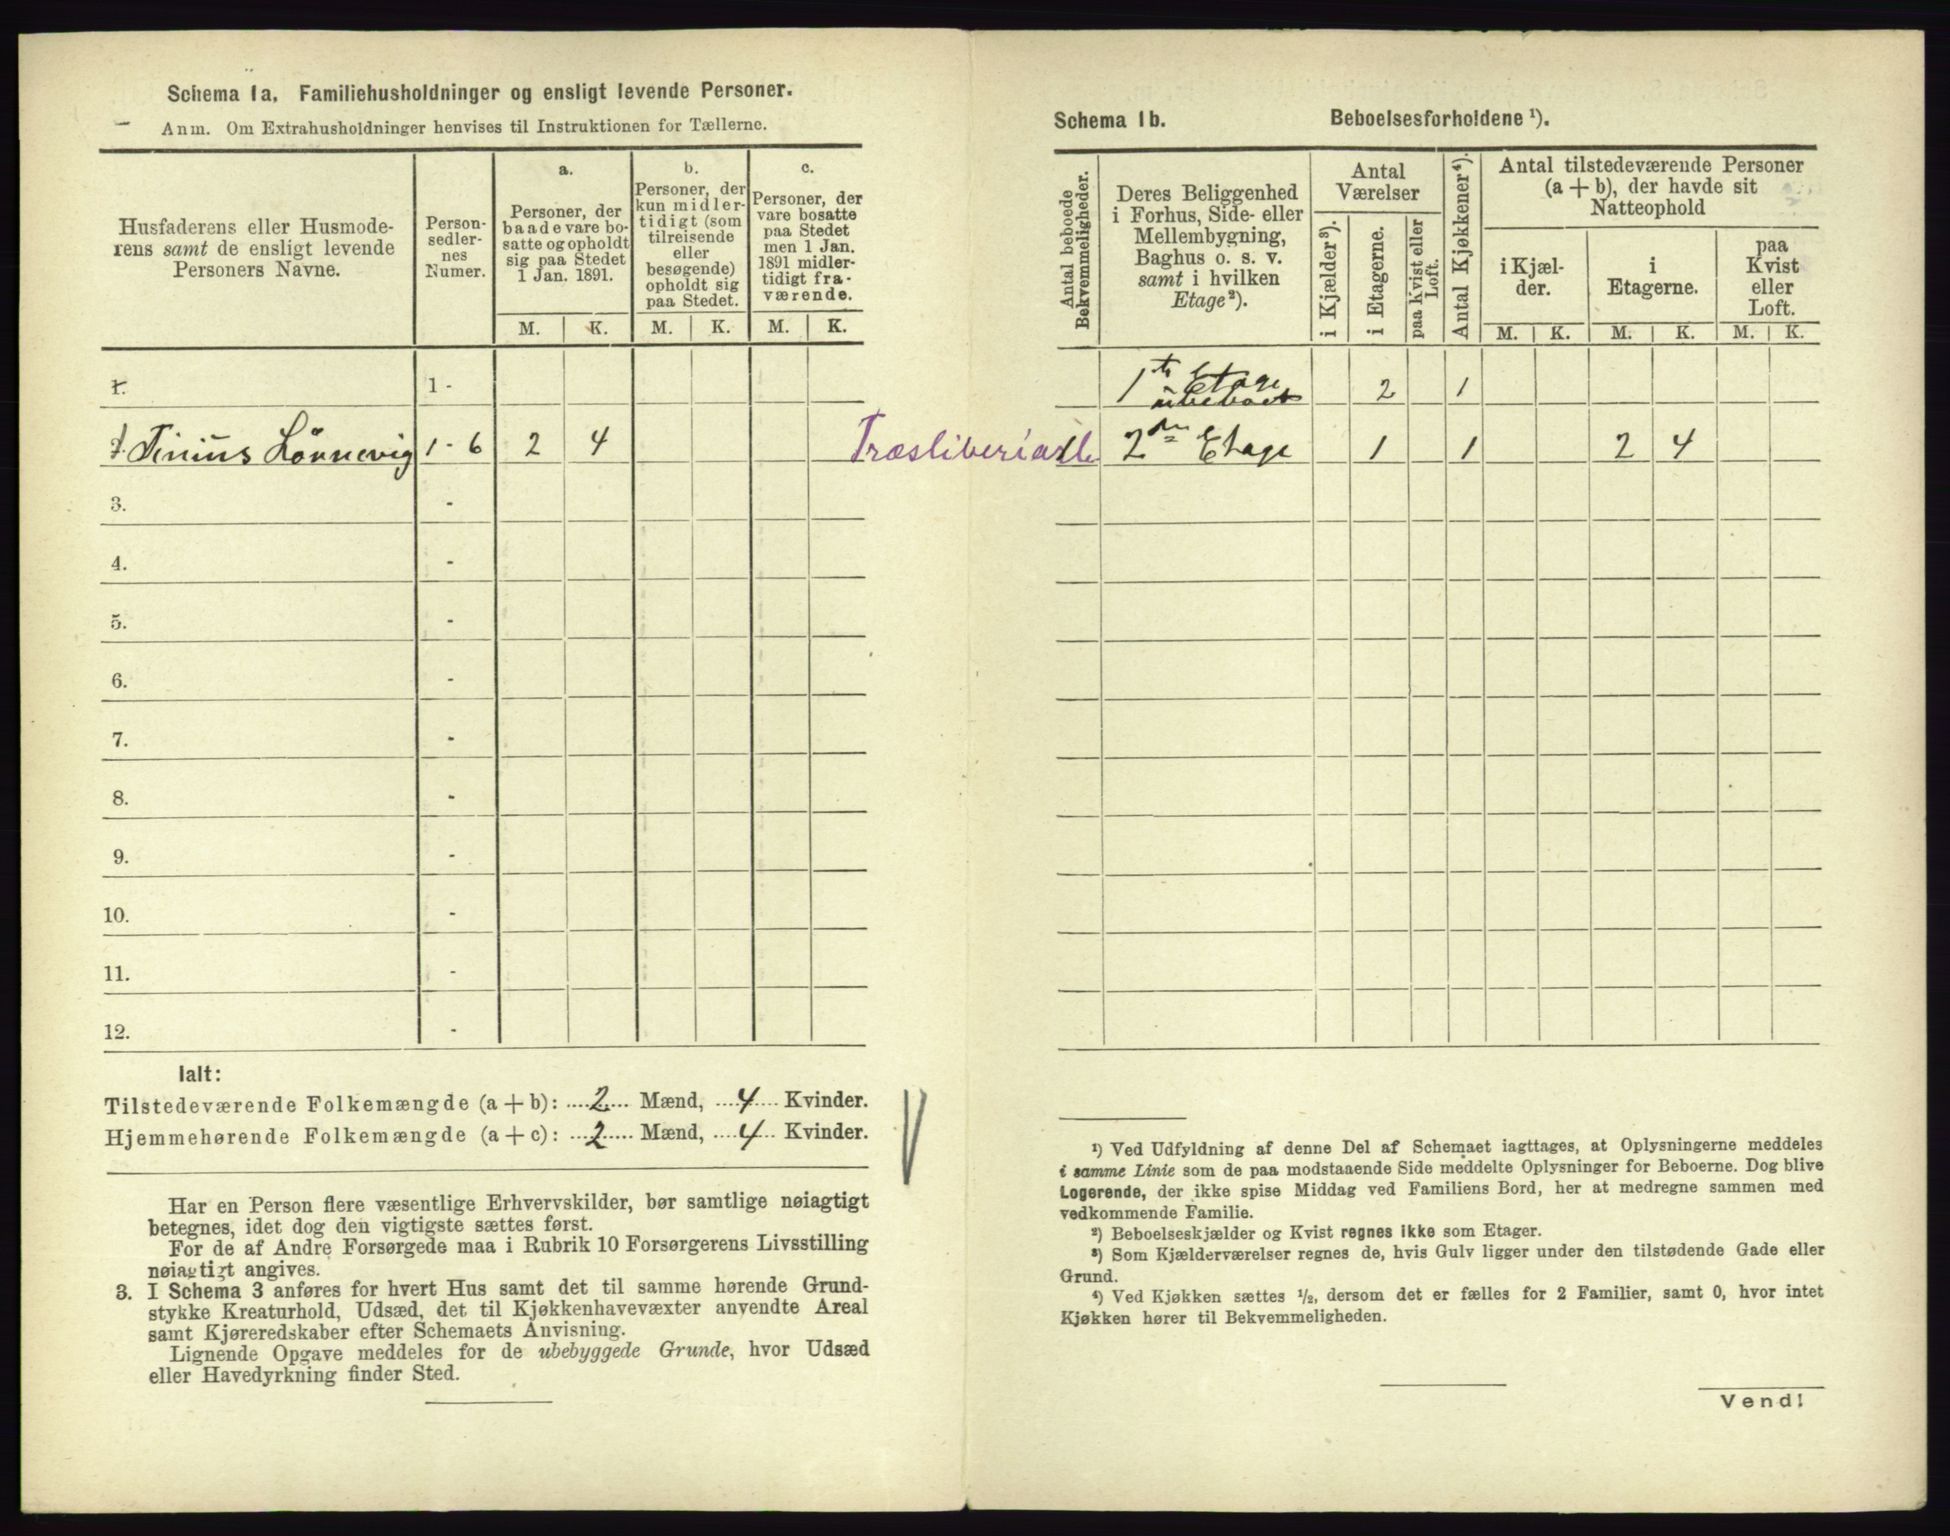 Schema 1a. Familiehusholdninger og ensligt levende Personer.
Anm. Om Extrahusholdninger henvises til Instruktionen for Tællerne.
Husfaderens eller Husmode-
rens samt de ensligt levende
Personers Navne.
Person-
sedler-
nes
Numer.
a.
Personer, der
baade vare bo-
satte og opholdt
sig paa Stedet
1 Jan. 1891.
b.
Personer, der
kun midler-
tidigt (som
tilreisende
eller
besøgende)
opholdt sig
paa Stedet.
c.
Personer, der
vare bosatte
paa Stedet
men 1 Jan.
1891 midler-
tidigt fra-
værende.
M. K. M. K. M. K.
1. 1 -
1. Tinius Lönnevig 1 - 6 2 4
3. -
4. -
5. -
6. -
7. -
8. -
9. -
10. -
11. -
12. -
Ialt:
Tilstedeværende Folkemængde (a + b): 2 Mænd, 4 Kvinder.
Hjemmehørende Folkemængde (a + c): 2 Mænd, 4 Kvinder.
Har en Person flere væsentlige Erhvervskilder, bør samtlige nøiagtigt
betegnes, idet dog den vigtigste sættes først.
For de af Andre Forsørgede maa i Rubrik 10 Forsørgerens Livsstilling
nøiagtigt angives.
3. I Schema 3 anføres for hvert Hus samt det til samme hørende Grund-
stykke Kreaturhold, Udsæd, det til Kjøkkenhavevæxter anvendte Areal
samt Kjøreredskaber efter Schemaets Anvisning.
Lignende Opgave meddeles for de ubebyggede Grunde, hvor Udsæd
eller Havedyrkning finder Sted.
Schema 1b. Beboelsesforholdene ¹).
Antal beboede
Bekvemmeligheder.
Deres Beliggenhed
i Forhus, Side- eller
Mellembygning,
Baghus o. s. v.
samt i hvilken
Etage²).
Antal
Værelser
i Kjælder³).
i Etagerne.
paa Kvist eller
Loft.
Antal Kjøkkener⁴).
Antal tilstedeværende Personer
(a + b), der havde sit
Natteophold
i Kjæl-
der.
i
Etagerne.
paa
Kvist
eller
Loft.
M. K. M. K. M. K.
1te Etage 2 1
ubeboet
2den Etage 1 1 2 4
¹) Ved Udfyldning af denne Del af Schemaet iagttages, at Oplysningerne meddeles
i samme Linie som de paa modstaaende Side meddelte Oplysninger for Beboerne. Dog blive
Logerende, der ikke spise Middag ved Familiens Bord, her at medregne sammen med
vedkommende Familie.
²) Beboelseskjælder og Kvist regnes ikke som Etager.
³) Som Kjælderværelser regnes de, hvis Gulv ligger under den tilstødende Gade eller
Grund.
⁴) Ved Kjøkken sættes ½, dersom det er fælles for 2 Familier, samt 0, hvor intet
Kjøkken hører til Bekvemmeligheden.
Vend!